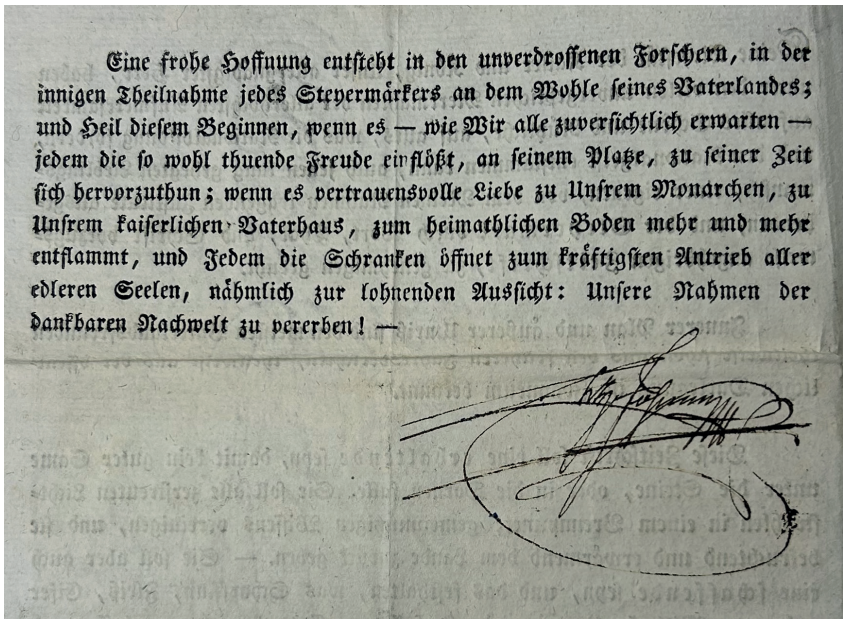 Eine frohe Hoffnung entsteht in den unverdrossenen Forschern, in der
innigen Theilnahme jedes Steyermärkers an dem Wohle seines Vaterlandes;
und Heil diesem Beginnen, wenn es — wie Wir alle zuversichtlich erwarten —
jedem die so wohl thuende Freude einflößt, an seinem Platze, zu seiner Zeit
sich hervorzuthun; wenn es vertrauensvolle Liebe zu Unsrem Monarchen, zu
Unsrem kaiserlichen Vaterhaus, zum heimathlichen Boden mehr und mehr
entflammt, und Jedem die Schranken öffnet zum kräftigsten Antrieb aller
edleren Seelen, nähmlich zur lohnenden Aussicht: Unsere Nahmen der
dankbaren Nachwelt zu vererben! —